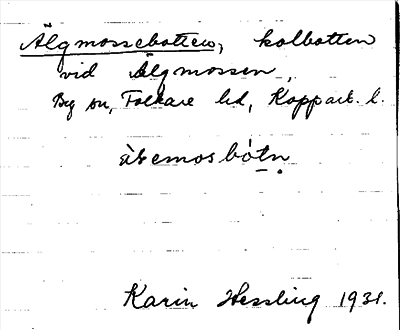 Älgmossebotten, kolbotten
vid Älgmossen,
By sn, Folkare hd, Kopparb. l.
àbemosbòtn
Karin Hessling 1931.